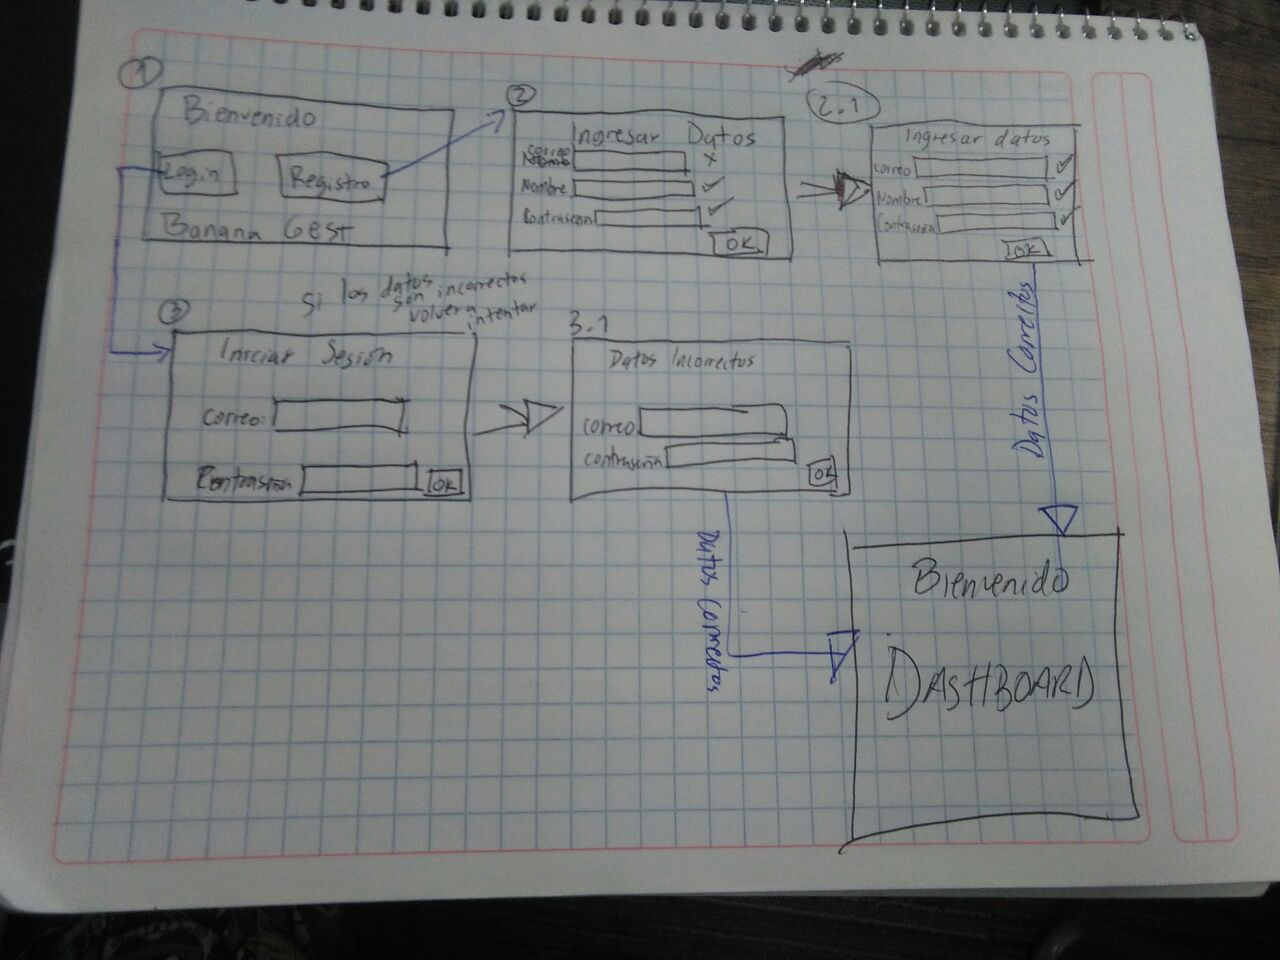 1
Bienvenido
Login
Registro
Banana Gest
2
Ingresar Datos
correo
x
Nombre
Contraseña
OK
2.1
Ingresar datos
correo
Nombre
Contraseña
OK
Datos Correctos
si los datos
son incorrectos
volver a
intentar
3
Iniciar Sesión
correo:
Contraseña
OK
3.1
Datos Incorrectos
correo
contraseña
OK
Datos Correctos
Bienvenido
DASHBOARD